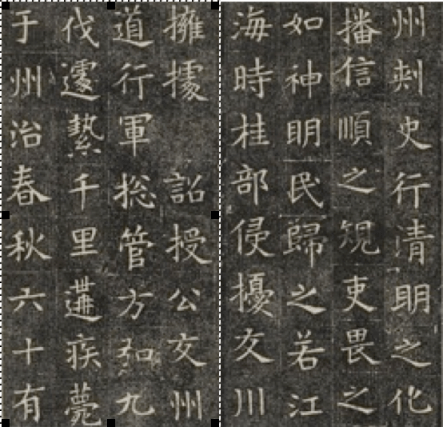 州刾史行清明之化
播信順之䂓吏畏之
如神明民歸之若江
海時桂部侵擾交川
擁據 詔授公交州
道行軍揔管方弘九
伐遽縶千里遘疾薨
于州治春秋六十有